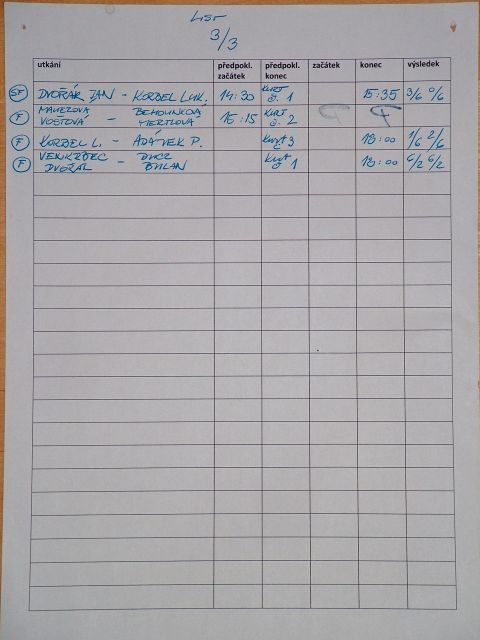 LIST
3/3
utkání předpokl. začátek předpokl. konec začátek konec výsledek
SF DVOŘÁK JAN - KORBEL LUK. 14:30 KURT č. 1 15:35 3/6 0/6
F VOŠTOVÁ - BEHOUNKOVA 15:15 KURT č. 2
F KORBEL L. - ADÁMEK P. KURT č. 3 18:00 1/6 2/6
F DVOŘÁK - KURT č. 1 18:00 6/2 6/2